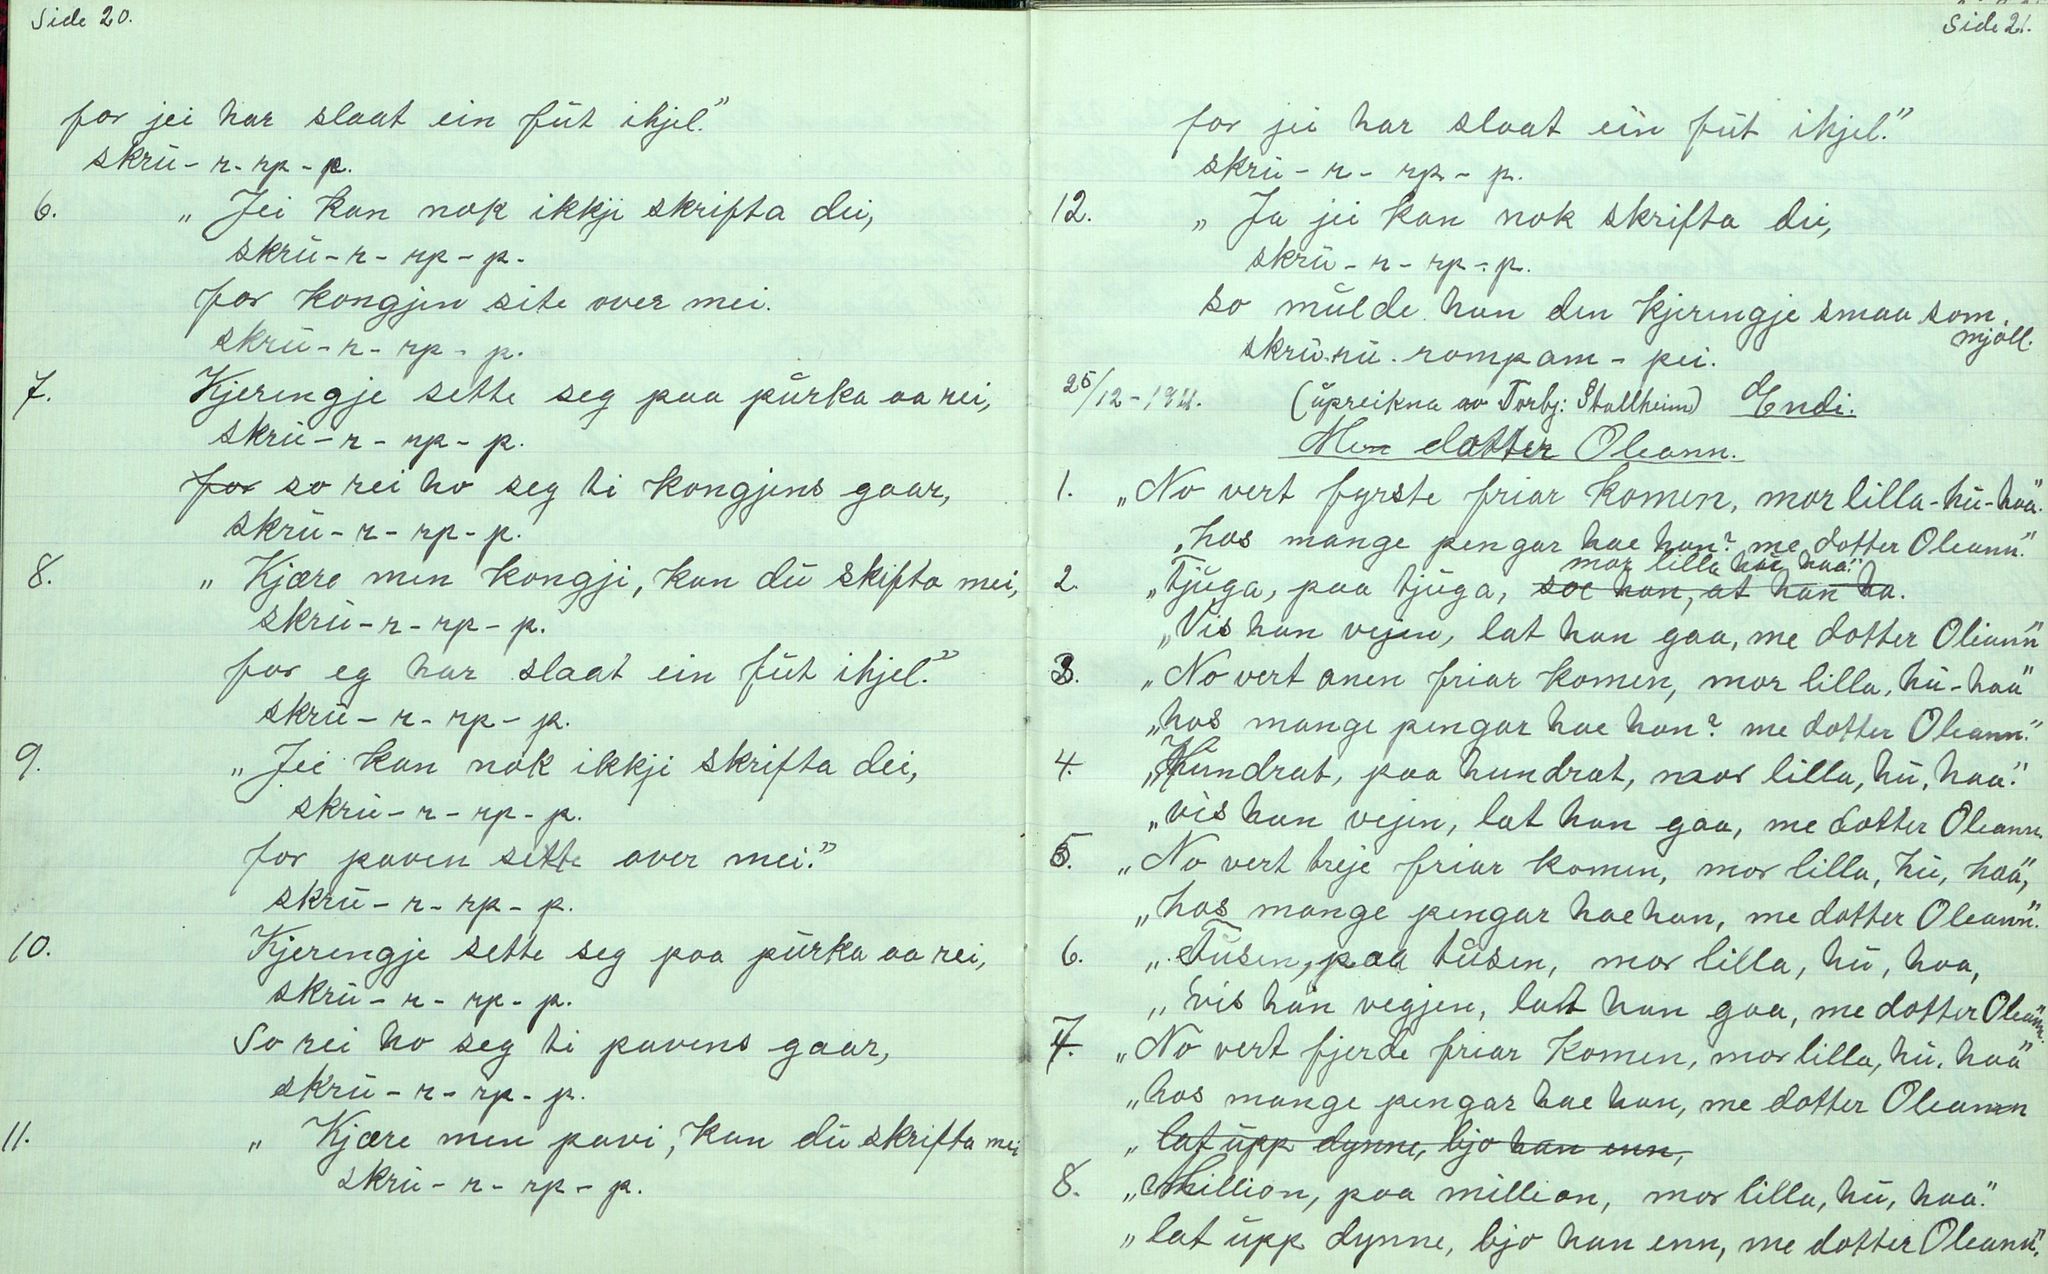 Side 20.
for jei har slaat ein fŭt ihjel."
skrŭ - r - rp - p.
6. „ Jei kan nok ikkji skrifta dei,
skrŭ - r - rp - p -
for kongjen site over mei.
skrŭ - r - rp - p.
7. Kjeringje sette seg paa pŭrka aa rei,
skrŭ - r - rp - p.
for so rei ho seg ti kongjens gaar,
skrŭ - r - rp - p.
8. „ Kjære min kongji, kan dŭ skifta mei,
skrŭ - r - rp - p.
for eg har slaat ein fŭt ihjel."
skrŭ - r - rp - p.
9. „ Jei kan nok ikkji skrifta dei,
skrŭ - r - rp - p.
for paven sette over mei."
skrŭ - r - rp - p.
10. Kjeringje sette seg paa pŭrka aa rei,
skrŭ - r - rp - p.
So rei ho seg ti pavens gaar,
skrŭ - r - rp - p.
11. „ Kjære min pavi, kan dŭ skrifta mei
skrŭ - r - rp - p.
Side 21.
for jei har slaat ein fŭt ihjel."
skrŭ - r - rp - p.
12. „ Ja jei kan nok skrifta dei,
skrŭ - r - rp - p.
so mŭlde han den kjeringje smaa som
mjøll.
skrŭ-rŭ-rompam - pei.
25/12 - 1921. (ŭpreikna av Torbj: Stallheim) Endi.
Men dotter Oleann.
1. „No vert fyrste friar komen, mor lilla-hŭ-haa"
„hos mange pengar hae han? me dotter Oleann."
mor lilla hŭ, haa."
2. „Tjŭga, paa tjŭga, soe han, at han ha.
„Vis han vejen, lat han gaa, me dotter Oleann"
3. „No vert anen friar komen, mor lilla, hŭ-haa"
„hos mange pengar hae han? me dotter Oleann."
4. „Hundrat, paa hundrat, mor lilla, hŭ, haa."
„vis han vejen, lat han gaa, me dotter Oleann.
5. „No vert treje friar komen, mor lilla, hŭ, haa",
„hos mange pengar hae han, me dotter Oleann".
6. „Tŭsen, paa tŭsen, mor lilla, hŭ, haa,
„vis han vegjen, latt han gaa, me dotter Oleann".
7. „No vert fjerde friar komen, mor lilla, hŭ, haa"
„hos mange pengar hae han, me dotter Oleann
„lat ŭpp dynne, bjo han enn,
8. „Million, paa million, mor lilla, hŭ, haa."
„lat ŭpp dynne, bjo han enn, me dotter Oleann".